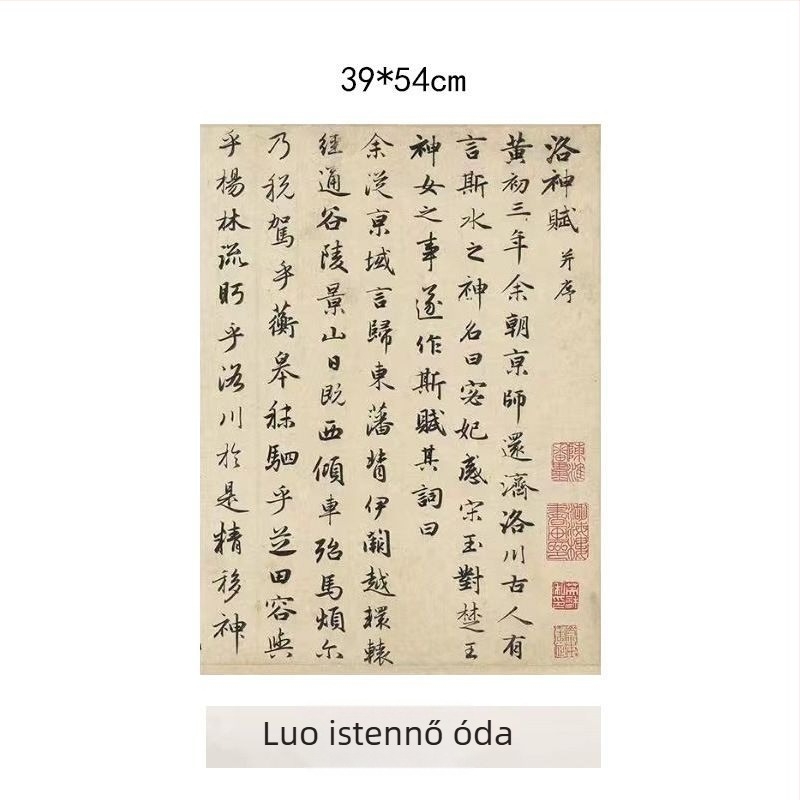 39*54cm
洛神賦 并序
黄初三年余朝京師還濟洛川古人有
言斯水之神名曰宓妃感宋玉對楚王
神女之事遂作斯賦其詞曰
余從京域言歸東藩背伊闕越轘轅
經通谷陵景山日既西傾車殆馬煩尔
乃税駕乎蘅皋秣駟乎芝田容與
乎楊林流眄乎洛川於是精移神
Luo istennő óda